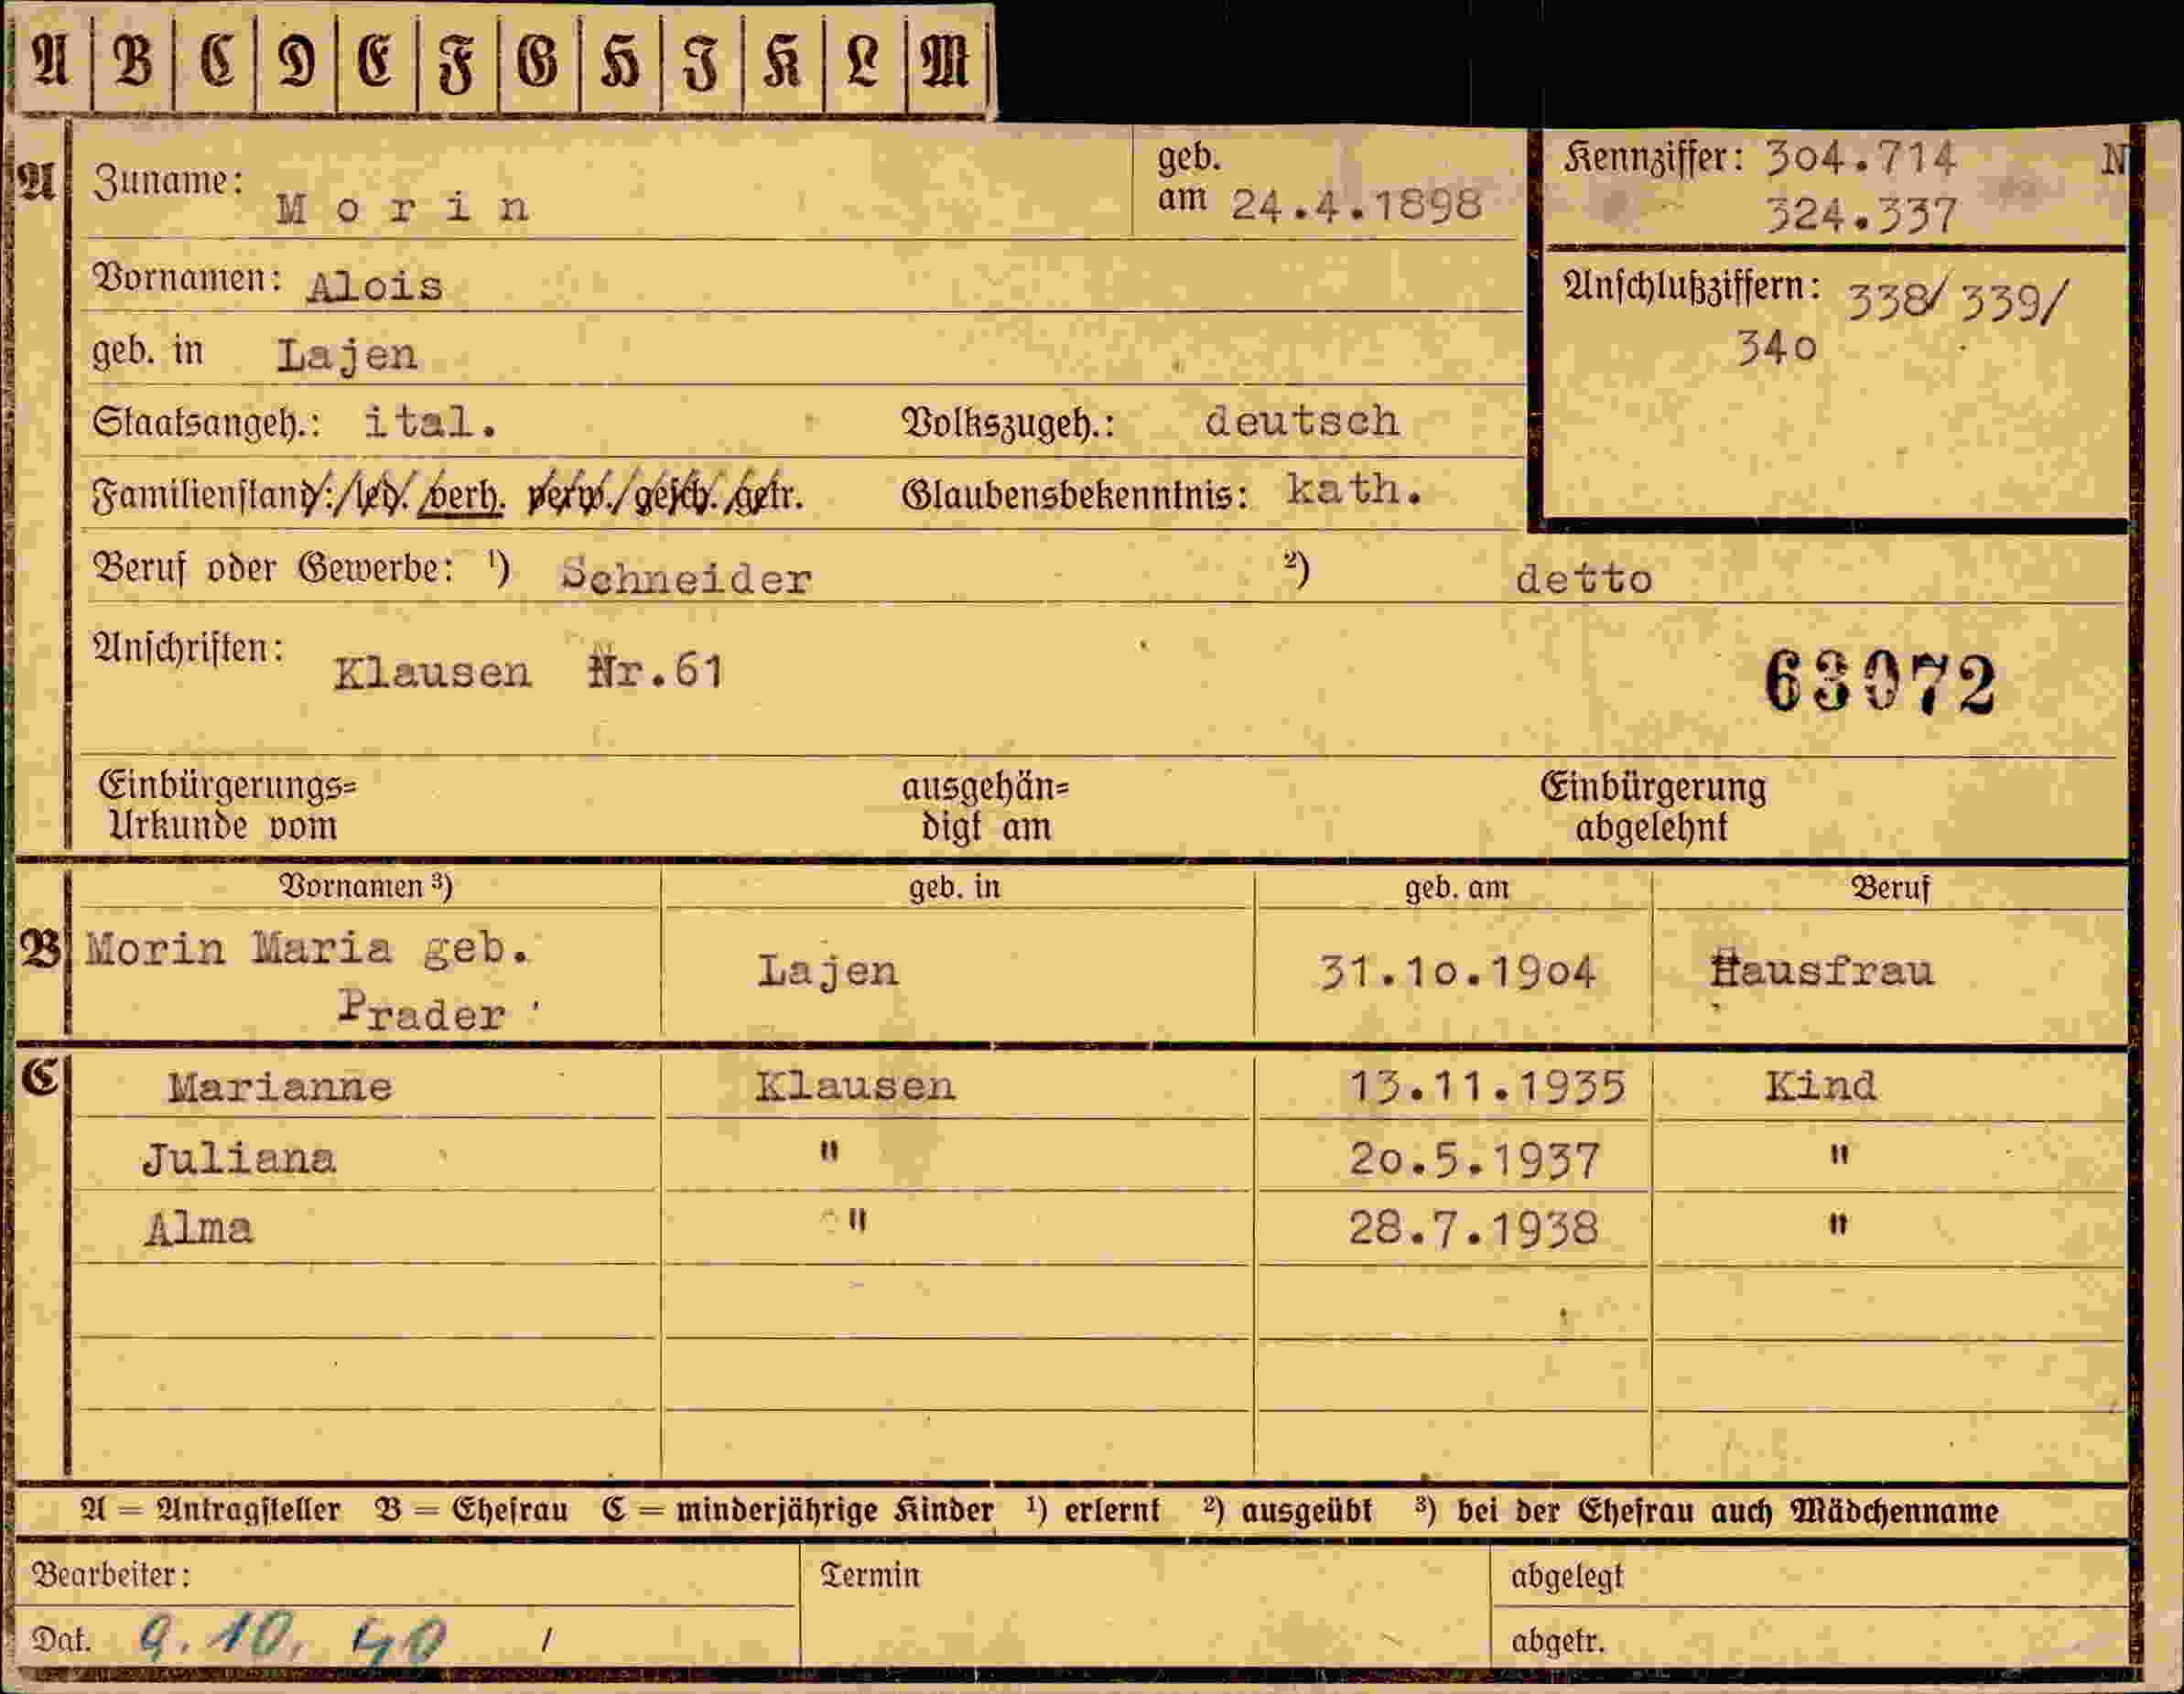 A B C D E F G H I K L M
A Zuname: Morin geb. am 24.4.1898 Kennziffer: 304.714 N
324.337
Vornamen: Alois Anschlußziffern: 338/339/
340
geb. in Lajen
Staatsangeh.: ital. Volkszugeh.: deutsch
Familienstand: / led. / verh. verw. / gesch. / getr. Glaubensbekenntnis: kath.
Beruf oder Gewerbe: ¹) Schneider ²) detto
Anschriften: Klausen Nr.61 63072
Einbürgerungs= ausgehän= Einbürgerung
Urkunde vom digt am abgelehnt
Vornamen ³) geb. in geb. am Beruf
B Morin Maria geb. Lajen 31.10.1904 Hausfrau
Prader
C Marianne Klausen 13.11.1935 Kind
Juliana " 20.5.1937 "
Alma " 28.7.1938 "
A = Antragsteller B = Ehefrau C = minderjährige Kinder ¹) erlernt ²) ausgeübt ³) bei der Ehefrau auch Mädchenname
Bearbeiter: Termin abgelegt
Dat. 9.10.40 / abgetr.